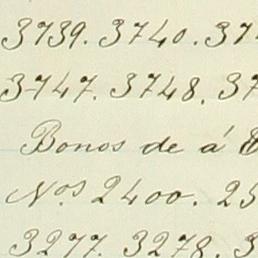 3739. 3740. 374
3747. 3748. 37
Bonos de á
Nos. 2400. 25
3277. 3278. 3